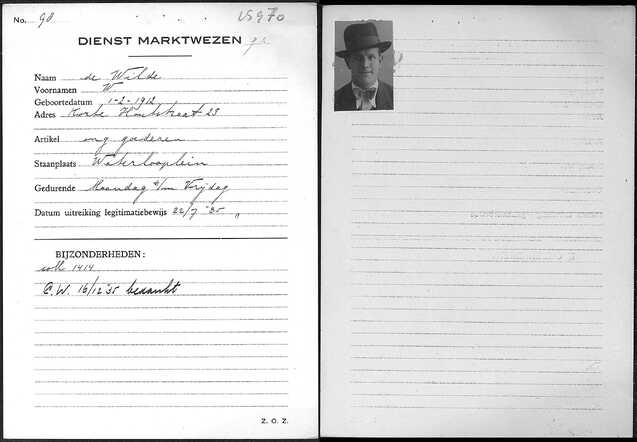 No. 90
LS970
DIENST MARKTWEZEN
Naam de Wilde
Voornamen W.
Geboortedatum 1-2-1912
Adres Korte Houtstraat 23
Artikel ong goederen
Staanplaats Waterlooplein
Gedurende Maandag t/m Vrijdag
Datum uitreiking legitimatiebewijs 22/7 '35
BIJZONDERHEDEN:
soll 1414
C.W. 16/12 '35 bedankt
Z. O. Z.